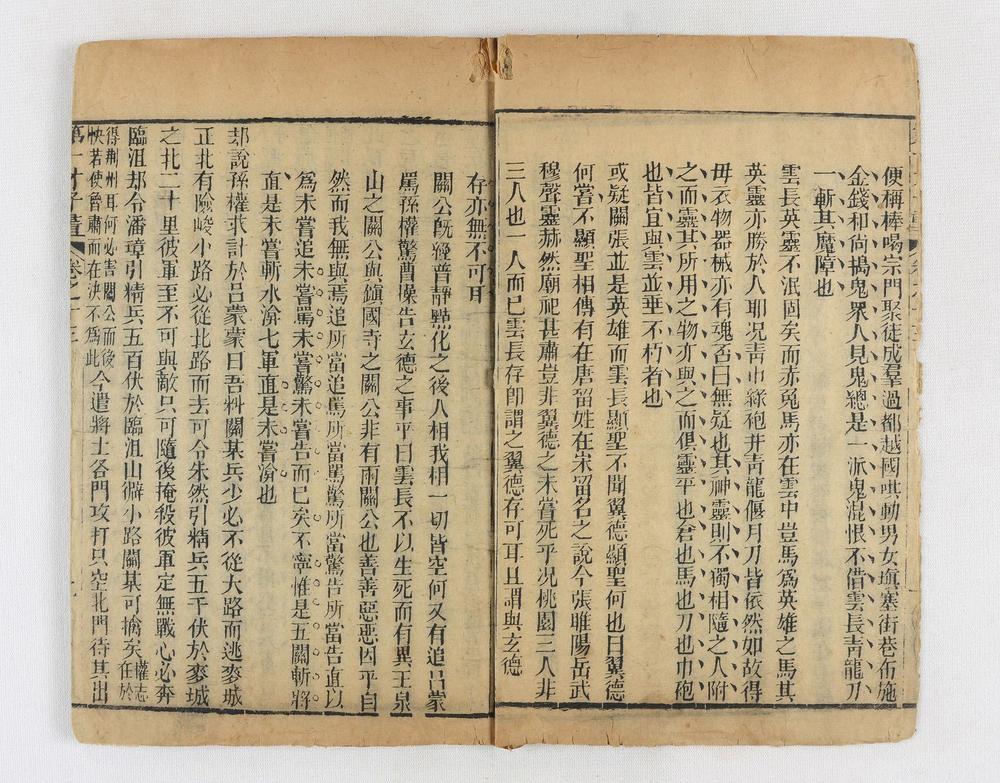 便稱棒喝宗門聚徒成羣過都越國哄動男女塡塞街巷布施
金錢和尚搗鬼衆人見鬼總是一派鬼混恨不借雲長靑龍刀
一斬其魔障也
雲長英靈不泯固矣而赤兔馬亦在雲中豈馬爲英雄之馬其
英靈亦勝於人耶况靑巾綠袍幷靑龍偃月刀皆依然如故得
毋衣物器械亦有魂否曰無疑也其神靈則不獨相隨之人附
之而靈其所用之物亦與之而俱靈乎也君也馬也刀也巾袍
也皆宜與雲並垂不朽者也
或疑關張並是英雄而雲長顯聖不聞翼德顯聖何也曰翼德
何嘗不顯聖相傳有在唐留姓在宋留名之說今張睢陽岳武
穆聲靈赫然廟祀甚肅豈非翼德之未嘗死乎况桃園三人非
三人也一人而已雲長存卽謂之翼德存可耳且謂與玄德
存亦無不可耳
關公旣經普靜點化之後人相我相一切皆空何又有追呂蒙
罵孫權驚曹操告玄德之事乎曰雲長不以生死而有異玉泉
山之關公與鎭國寺之關公非有兩關公也善善惡惡因乎自
然而我無與焉追所當追罵所當罵驚所當驚告所當告直以
爲未嘗追未嘗罵未嘗驚未嘗告而已矣不寧惟是五關斬將
直是未嘗斬水渰七軍直是未嘗渰也
却說孫權求計於呂蒙蒙曰吾料關某兵少必不從大路而逃麥城
正北有險峻小路必從北路而去可令朱然引精兵五千伏於麥城
之北二十里彼軍至不可與敵只可隨後掩殺彼軍定無戰心必奔
臨沮却令潘璋引精兵五百伏於臨沮山僻小路關某可擒矣權志在於
得荆州耳何必害關公而後快若使魯肅而在決不爲此今遣將士各門攻打只空北門待其出
第一才子書 卷之十三